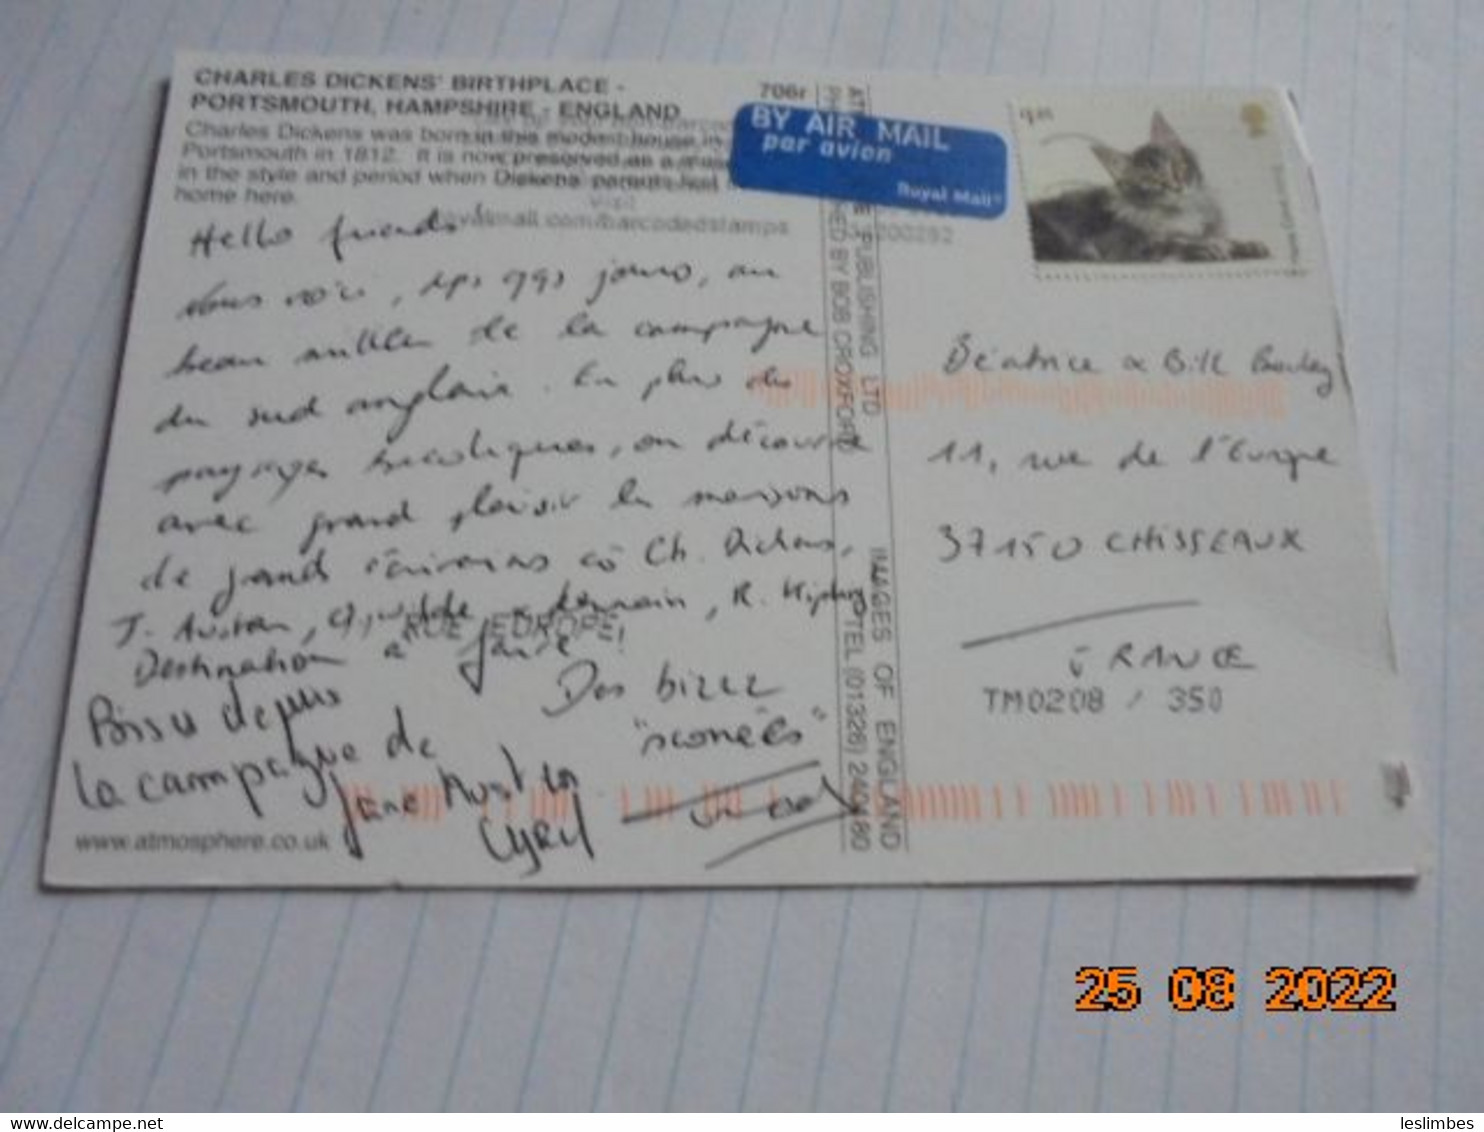 CHARLES DICKENS' BIRTHPLACE -
PORTSMOUTH, HAMPSHIRE - ENGLAND
Charles Dickens was born in this modest house in
Portsmouth in 1812. It is now preserved as a
in the style and period when Dickens' parents
home here.
706r
BY AIR MAIL
par avion
Royal Mail
royalmail.com/barcodedstamps
Hello friends!
Nous voici, dps qqs jours, au
beau milieu de la campagne
du sud anglais. En plus des
paysages bucoliques, on découvre
avec grand plaisir les maisons
de grands écrivains où Ch. Dickens,
J. Austen, R. Kipling
RUE EUROPE
Destination à
Des bizzz
"sconeés"
Bisou depuis
la campagne de
Jane Austen
Cyril
www.atmosphere.co.uk
PUBLISHING LTD
BY BOB CROXFORD
IMAGES OF ENGLAND
TEL (01326) 240180
Béatrice & Bill
11, rue de l'Europe
37150 CHISSEAUX
FRANCE
TM0208 / 350
25 08 2022
leslimbes